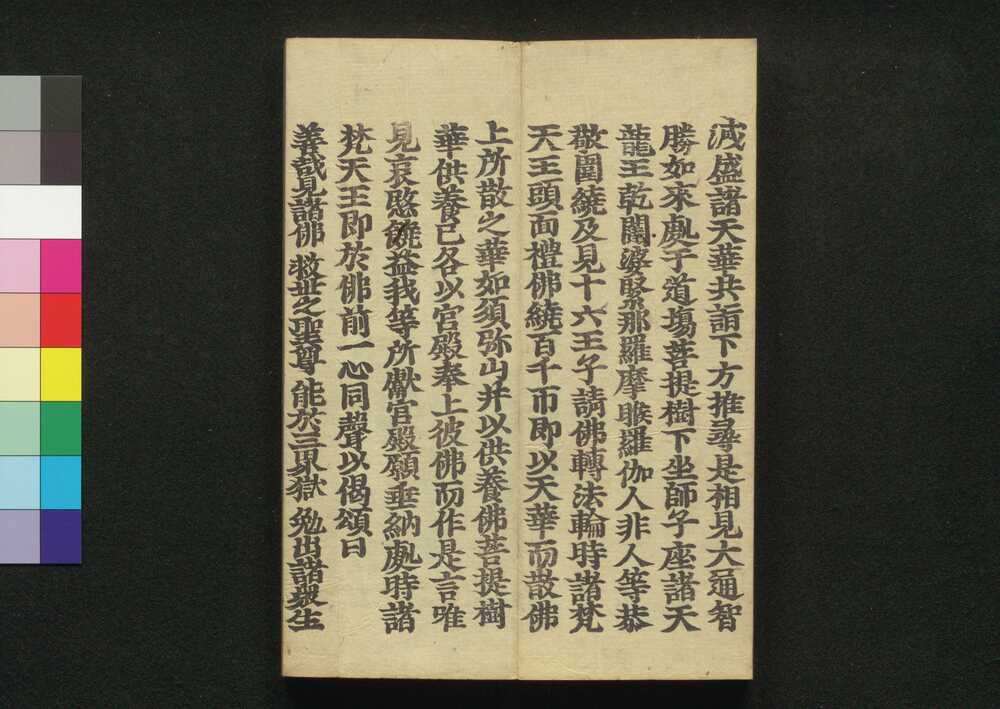 裓盛諸天華共詣下方推尋是相見大通智
勝如來處于道塲菩提樹下坐師子座諸天
龍王乾闥婆緊那羅摩睺羅伽人非人等恭
敬圍繞及見十六王子請佛轉法輪時諸梵
天王頭面禮佛繞百千帀即以天華而散佛
上所散之華如須弥山并以供養佛菩提樹
華供養已各以宮殿奉上彼佛而作是言唯
見哀愍饒益我等所獻宮殿願垂納處時諸
梵天王即於佛前一心同聲以偈頌曰
善哉見諸佛 救世之聖尊 能於三界獄 勉出諸衆生